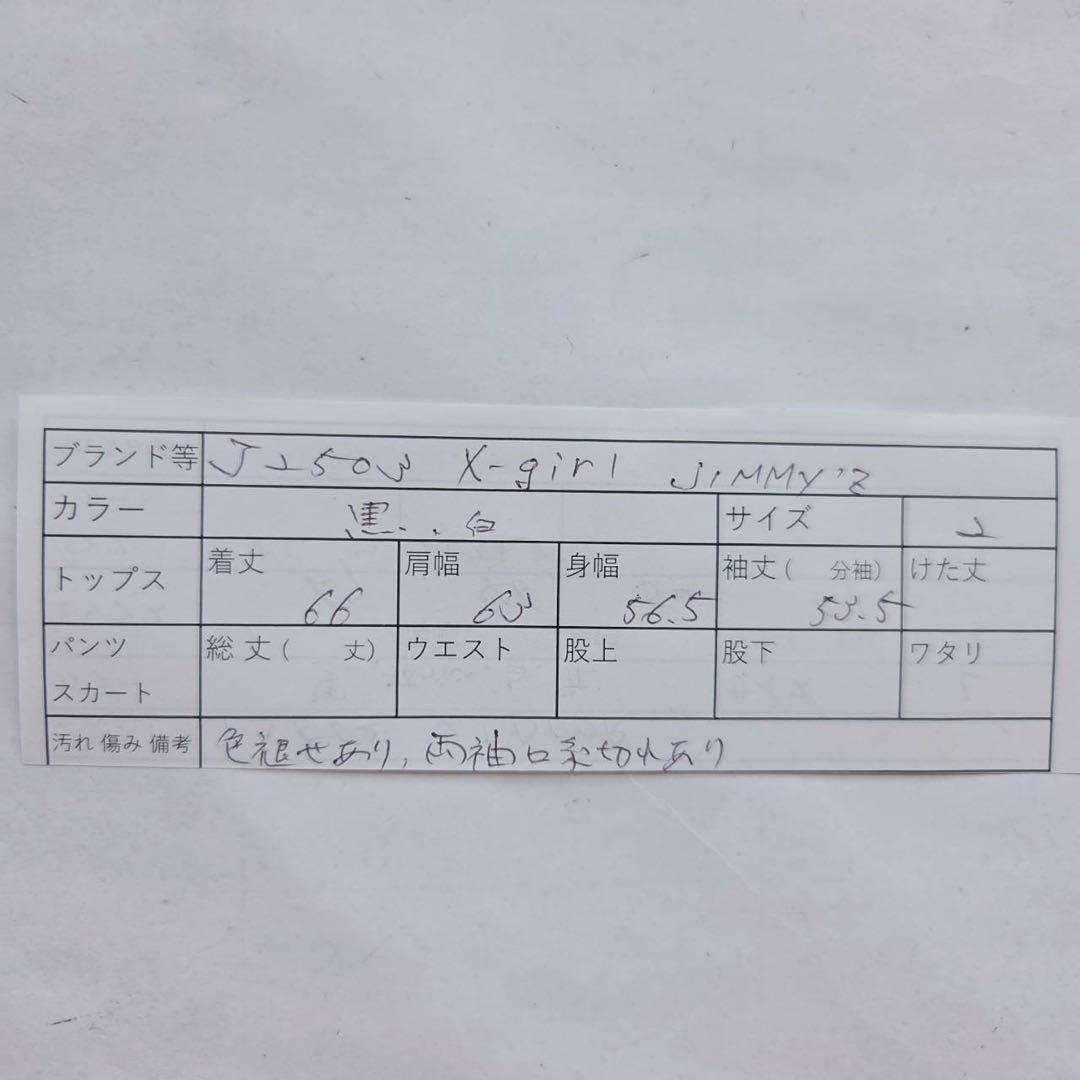 ブランド等 J2503 X-girl JIMMY'Z
カラー 黒、白 サイズ 2
トップス 着丈 66 肩幅 63 身幅 56.5 袖丈( 分袖) 53.5 けた丈
パンツ スカート 総丈( 丈) ウエスト 股上 股下 ワタリ
汚れ 傷み 備考 色褪せあり、両袖口糸切れあり